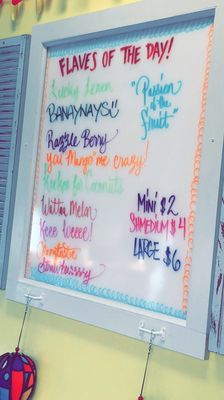 FLAVES OF THE DAY!
Lucky Lemon
BANAYNAYS
Razzle Berry
You Mango me crazy!
Kookoo for Coconuts
Watta Melon
Keee Weeee!
"Passion
of the
Fruit"
MINI $2
SHMEDIUM $4
LARGE $6